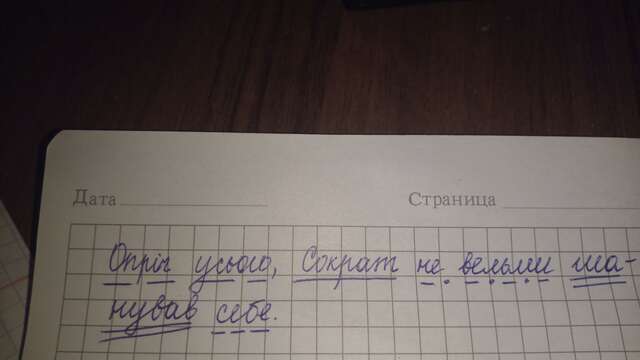 Дата Страница
Опріч усього, Сократ не вельми ша-
нував себе.